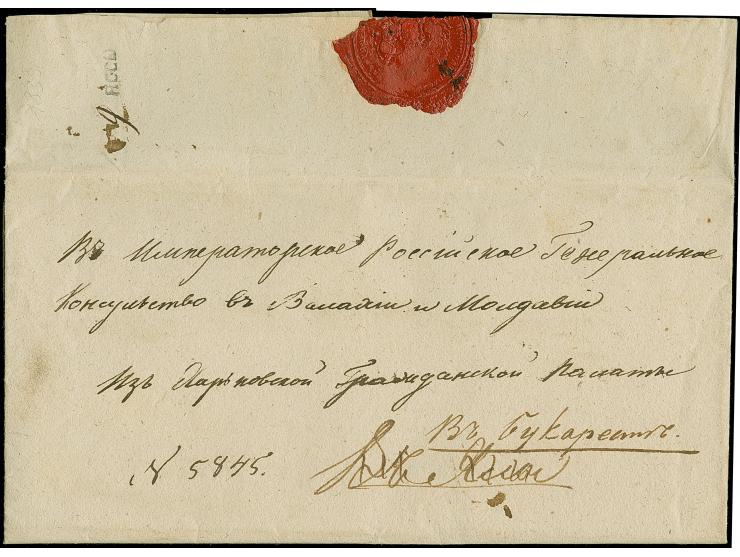 ЯССЫ
9
Въ Императорское Россійское Генеральное
Консульство въ Валахіи и Молдавіи
Изъ Харьковской Гражданской Палаты
Въ Букарестъ.
№ 5845.